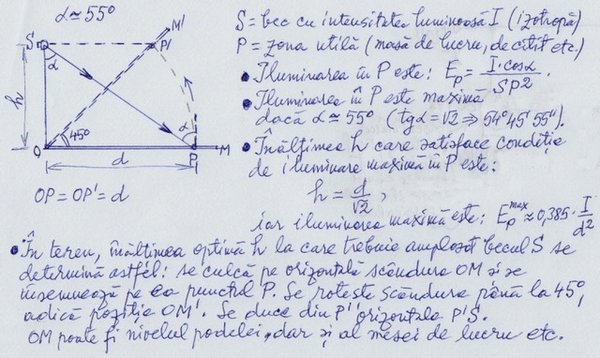 α ≃ 55°
M'
S
P'
α
h
45°
α
O
P
M
d
OP = OP' = d
S = bec cu intensitatea luminoasă I (izotropă)
P = zona utilă (masă de lucru, de citit etc.)
• Iluminarea în P este: E_P = I·cosα / SP²
• Iluminarea în P este maximă
dacă α ≃ 55° (tgα = √2 ⇒ 54°45'55").
• Înălțimea h care satisface condiția
de iluminare maximă în P este:
h = d/√2 ,
iar iluminarea maximă este: E_P^max ≈ 0,385 · I/d²
• În teren, înălțimea optimă h la care trebuie amplasat becul S se
determină astfel: se culcă pe orizontală scândura OM și se
însemnează pe ea punctul P. Se rotește scândura până la 45°,
adică poziția OM'. Se duce din P' orizontala P'S.
OM poate fi nivelul podelei, dar și al mesei de lucru etc.